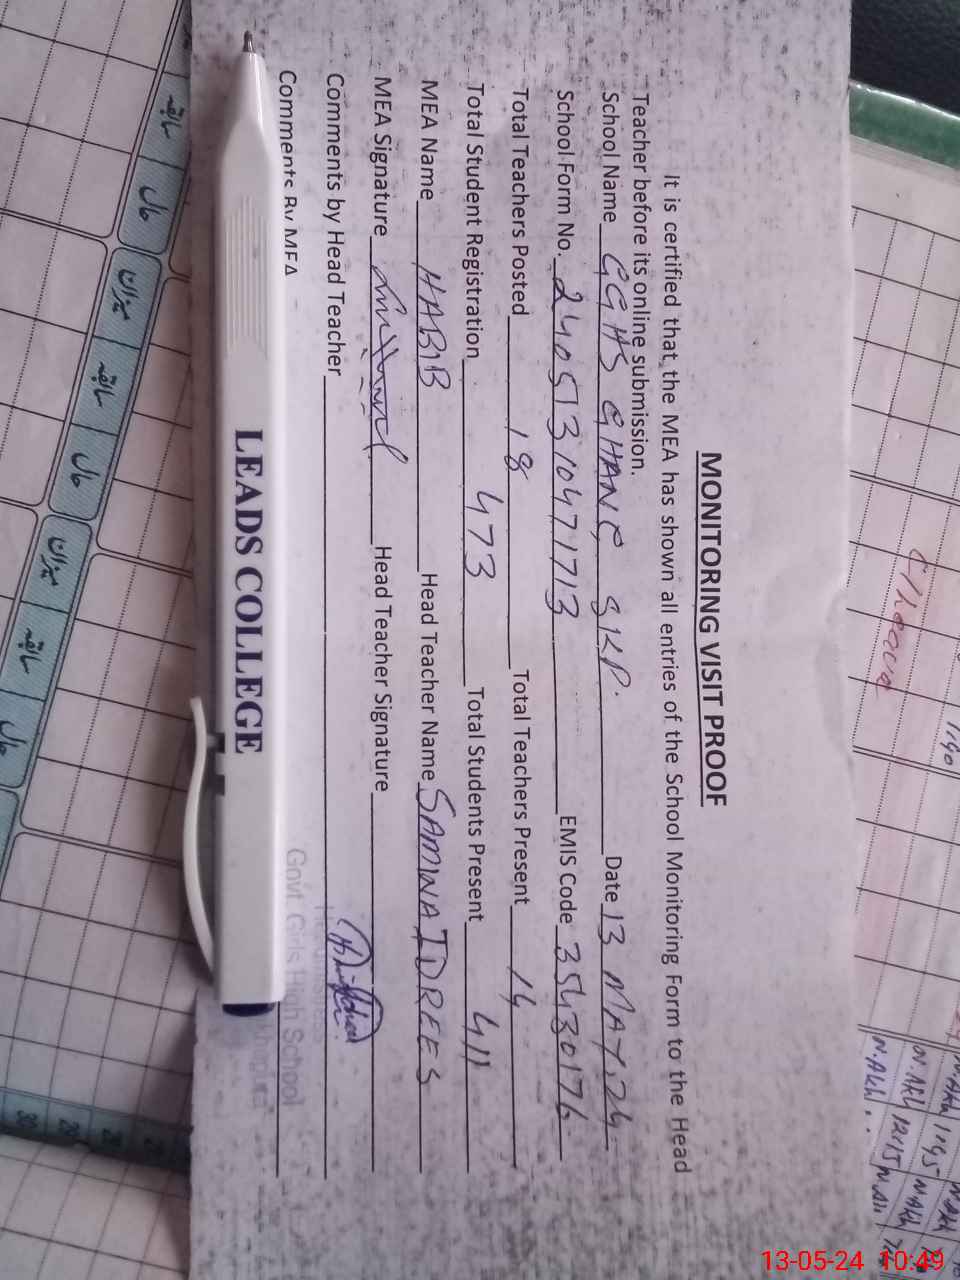 MONITORING VISIT PROOF
It is certified that the MEA has shown all entries of the School Monitoring Form to the Head
Teacher before its online submission.
School Name GGHS GHANG SKP. Date 13 MAY, 24
School Form No. 24051310471713 EMIS Code 35430176
Total Teachers Posted 18 Total Teachers Present 14
Total Student Registration 473 Total Students Present 411
MEA Name HABIB Head Teacher Name SAMINA IDREES
MEA Signature Head Teacher Signature
Comments by Head Teacher
Comments By MEA
Headmistress
Govt. Girls High School
LEADS COLLEGE
سابقہ
حال
میزان
سابقہ
حال
میزان
سابقہ
حال
30
29
28
13-05-24 10:49